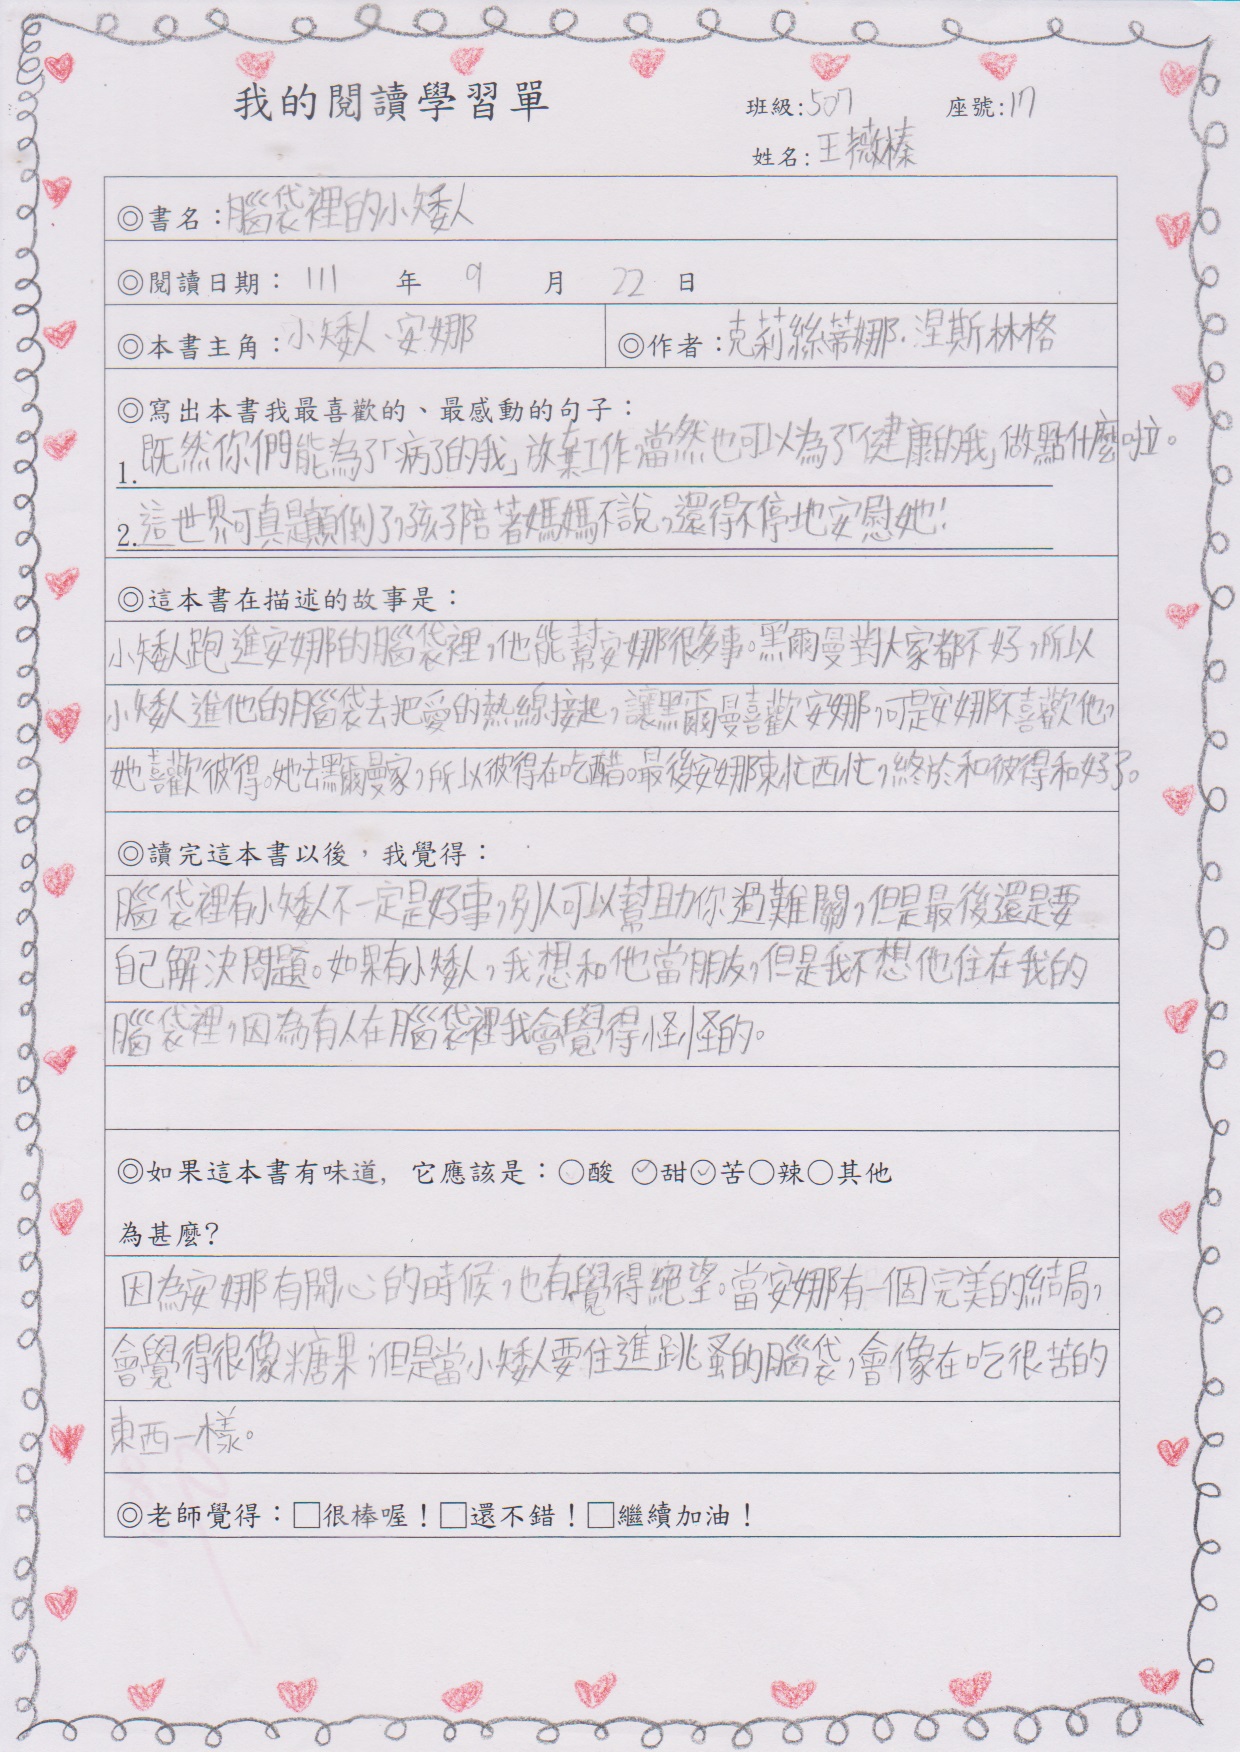 我的閱讀學習單
班級:507 座號:17
姓名:王薇榛
◎書名:腦袋裡的小矮人
◎閱讀日期: 111 年 9 月 22 日
◎本書主角:小矮人、安娜 ◎作者:克莉絲蒂娜.涅斯林格
◎寫出本書我最喜歡的、最感動的句子:
1.既然你們能為了「病了的我」放棄工作,當然也可以為了「健康的我」做點什麼啦。
2.這世界可真是顛倒了,孩子陪著媽媽不說,還得不停地安慰她!
◎這本書在描述的故事是:
小矮人跑進安娜的腦袋裡,他能幫安娜很多事。黑爾曼對大家都不好,所以
小矮人進他的腦袋去把愛的熱線接起,讓黑爾曼喜歡安娜,可是安娜不喜歡他,
她喜歡彼得。她去黑爾曼家,所以彼得在吃醋。最後安娜東忙西忙,終於和彼得和好了。
◎讀完這本書以後,我覺得:
腦袋裡有小矮人不一定是好事,別人可以幫助你過難關,但是最後還是要
自己解決問題。如果有小矮人,我想和他當朋友,但是我不想他住在我的
腦袋裡,因為有人在腦袋裡我會覺得怪怪的。
◎如果這本書有味道, 它應該是:○酸 ✓甜✓苦○辣○其他
為甚麼?
因為安娜有開心的時候,也有覺得絕望。當安娜有一個完美的結局,
會覺得很像糖果,但是當小矮人要住進跳蚤的腦袋,會像在吃很苦的
東西一樣。
◎老師覺得:□很棒喔!□還不錯!□繼續加油!